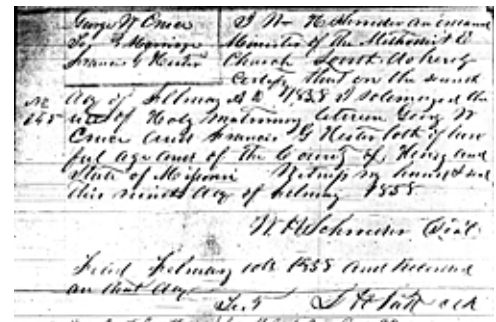 George W Cruce I W H Schroeder an
To } Marriage Minister of the Methodist E
Francis G Hester Church South do hereby
Certify that on the
day of February A D 1858 I solemnized the
rites of Holy Matrimony between George W
Cruce and Francis G Hester both of law
ful age and of the County of Henry and
State of Missouri Witness my hand and
this ninth day of February 1858
W H Schroeder
Filed February 10th 1858 and Recorded
on that day